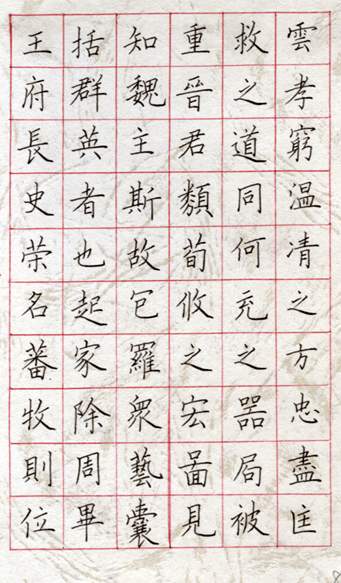 雲孝窮温凊之方忠盡匡
救之道同何充之器局被
重晉君類荀攸之宏啚見
知魏主斯故包羅衆藝囊
括群英者也起家除周畢
王府長史荣名蕃牧則位